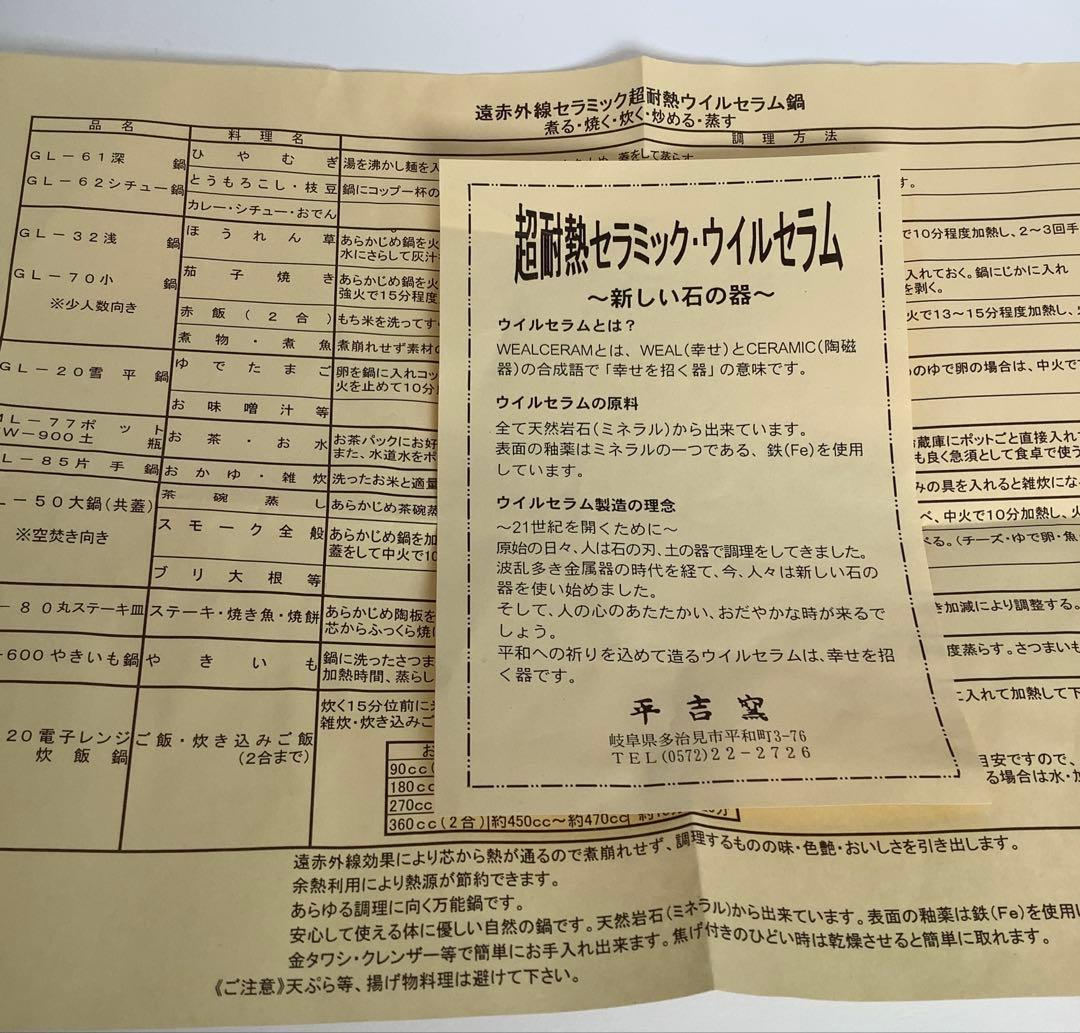 遠赤外線セラミック超耐熱ウイルセラム鍋
煮る・焼く・炊く・炒める・蒸す
品名 料理名 調理方法
GL－61深鍋 ひやむぎ 湯を沸かし麺を入 蓋をして蒸らす
GL－62シチュー鍋 とうもろこし・枝豆 鍋にコップ一杯の す。
カレー・シチュー・おでん
GL－32浅鍋 ほうれん草 あらかじめ鍋を火 で10分程度加熱し、2～3回手
水にさらして灰汁
GL－70小鍋 茄子焼き あらかじめ鍋を火 入れておく。鍋にじかに入れ
強火で15分程度 を剥く。
※少人数向き 赤飯(2合) もち米を洗ってす 火で13～15分程度加熱し、
煮物・煮魚 煮崩れせず素材の
GL－20雪平鍋 ゆでたまご 卵を鍋に入れコッ のゆで卵の場合は、中火で
火を止めて10分
お味噌汁等
L－77ポット お茶・お水 お茶パックにお好 蔵庫にポットごと直接入れ
W－900土瓶 また、水道水をポ も良く急須として食卓で使う
L－85片手鍋 おかゆ・雑炊 洗ったお米と適量 みの具を入れると雑炊にな
L－50大鍋(共蓋) 茶碗蒸し あらかじめ茶碗蒸 べ、中火で10分加熱し、火
※空焚き向き スモーク全般 あらかじめ鍋を加 べる。(チーズ・ゆで卵・魚
蓋をして中火で10
ブリ大根等
－80丸ステーキ皿 ステーキ・焼き魚・焼餅 あらかじめ陶板を き加減により調整する。
芯からふっくら焼
-600やきいも鍋 やきいも 鍋に洗ったさつま 度蒸らす。さつまいも
加熱時間、蒸らし
20電子レンジ炊飯鍋 ご飯・炊き込みご飯 炊く15分位前に に入れて加熱して下
(2合まで) 雑炊・炊き込みご 目安ですので、
る場合は水・加
お
90cc(
180cc
270cc
360cc(2合) 約450cc～約470cc
遠赤外線効果により芯から熱が通るので煮崩れせず、調理するものの味・色艶・おいしさを引き出します。
余熱利用により熱源が節約できます。
あらゆる調理に向く万能鍋です。
安心して使える体に優しい自然の鍋です。天然岩石(ミネラル)から出来ています。表面の釉薬は鉄(Fe)を使用し
金タワシ・クレンザー等で簡単にお手入れ出来ます。焦げ付きのひどい時は乾燥させると簡単に取れます。
《ご注意》天ぷら等、揚げ物料理は避けて下さい。
超耐熱セラミック・ウイルセラム
～新しい石の器～
ウイルセラムとは？
WEALCERAMとは、WEAL(幸せ)とCERAMIC(陶磁
器)の合成語で「幸せを招く器」の意味です。
ウイルセラムの原料
全て天然岩石(ミネラル)から出来ています。
表面の釉薬はミネラルの一つである、鉄(Fe)を使用
しています。
ウイルセラム製造の理念
～21世紀を開くために～
原始の日々、人は石の刃、土の器で調理をしてきました。
波乱多き金属器の時代を経て、今、人々は新しい石の
器を使い始めました。
そして、人の心のあたたかい、おだやかな時が来るで
しょう。
平和への祈りを込めて造るウイルセラムは、幸せを招
く器です。
平吉窯
岐阜県多治見市平和町3-76
TEL(0572)22-2726